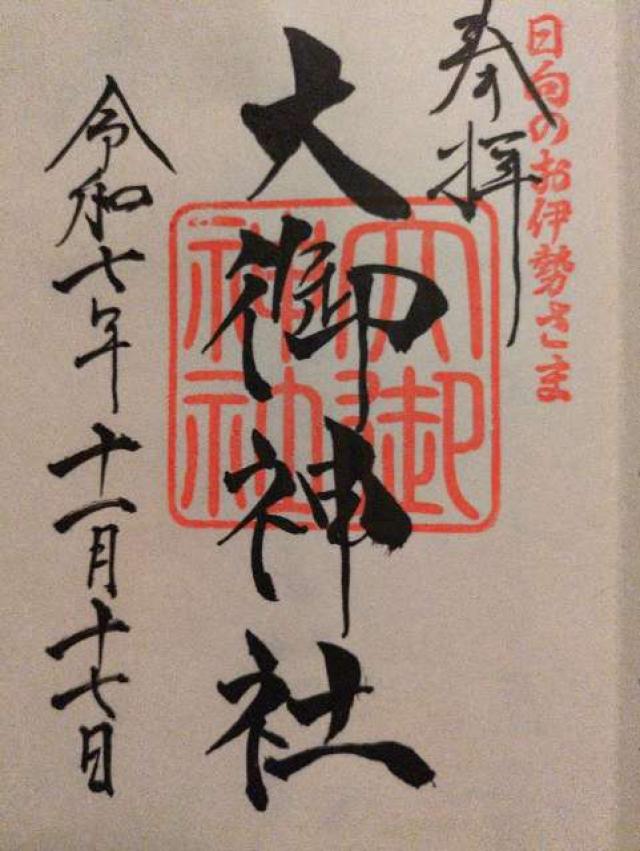 日向のお伊勢さま
奉拝
大御神社
大御神社
令和七年十一月十七日